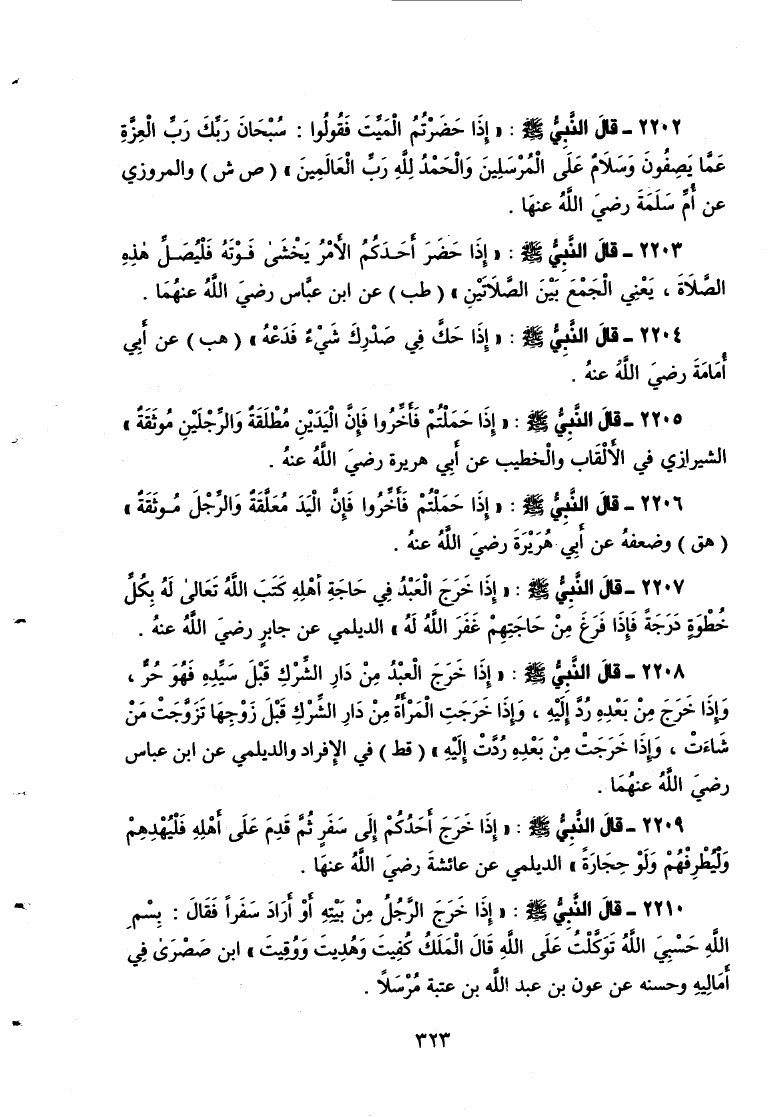 ٢٢٠٢ ـ قالَ النَّبِيُّ ﷺ : « إِذَا حَضَرْتُمُ الْمَيِّتَ فَقُولُوا : سُبْحَانَ رَبِّكَ رَبِّ الْعِزَّةِ
عَمَّا يَصِفُونَ وَسَلَامٌ عَلَى الْمُرْسَلِينَ وَالْحَمْدُ لِلَّهِ رَبِّ الْعَالَمِينَ » ( ص ش ) والمروزي
عن أُمِّ سَلَمَةَ رضيَ اللَّهُ عنهَا .
٢٢٠٣ ـ قالَ النَّبِيُّ ﷺ : « إِذَا حَضَرَ أَحَدَكُمُ الأَمْرُ يَخْشَىٰ فَوْتَهُ فَلْيُصَلِّ هٰذِهِ
الصَّلَاةَ ، يَعْنِي الْجَمْعَ بَيْنَ الصَّلَاتَيْنِ » ( طب ) عن ابن عبَّاس رضيَ اللَّهُ عنهُمَا .
٢٢٠٤ ـ قالَ النَّبِيُّ ﷺ : « إِذَا حَكَّ فِي صَدْرِكَ شَيْءٌ فَدَعْهُ » ( هب ) عن أَبي
أُمَامَةَ رضيَ اللَّهُ عنهُ .
٢٢٠٥ ـ قالَ النَّبِيُّ ﷺ : « إِذَا حَمَلْتُمْ فَأَخِّرُوا فَإِنَّ الْيَدَيْنِ مُطْلَقَةٌ وَالرِّجْلَيْنِ مُوثَقَةٌ »
الشيرازي في الأَلْقَاب والْخطيب عن أَبي هريرة رضيَ اللَّهُ عنهُ .
٢٢٠٦ ـ قالَ النَّبِيُّ ﷺ : « إِذَا حَمَلْتُمْ فَأَخِّرُوا فَإِنَّ الْيَدَ مُعَلَّقَةٌ وَالرِّجْلَ مُوثَقَةٌ »
( هق ) وضعفهُ عن أَبي هُرَيْرَةَ رضيَ اللَّهُ عنهُ .
٢٢٠٧ ـ قالَ النَّبِيُّ ﷺ : « إِذَا خَرَجَ الْعَبْدُ فِي حَاجَةِ أَهْلِهِ كَتَبَ اللَّهُ تَعَالَىٰ لَهُ بِكُلِّ
خُطْوَةٍ دَرَجَةً فَإِذَا فَرَغَ مِنْ حَاجَتِهِمْ غَفَرَ اللَّهُ لَهُ » الديلمي عن جابرٍ رضيَ اللَّهُ عنهُ .
٢٢٠٨ ـ قالَ النَّبِيُّ ﷺ : « إِذَا خَرَجَ الْعَبْدُ مِنْ دَارِ الشِّرْكِ قَبْلَ سَيِّدِهِ فَهُوَ حُرٌّ ،
وَإِذَا خَرَجَ مِنْ بَعْدِهِ رُدَّ إِلَيْهِ ، وَإِذَا خَرَجَتِ الْمَرْأَةُ مِنْ دَارِ الشِّرْكِ قَبْلَ زَوْجِهَا تَزَوَّجَتْ مَنْ
شَاءَتْ ، وَإِذَا خَرَجَتْ مِنْ بَعْدِهِ رُدَّتْ إِلَيْهِ » ( قط ) في الإِفراد والديلمي عن ابن عباس
رضيَ اللَّهُ عنهُمَا .
٢٢٠٩ ـ قالَ النَّبِيُّ ﷺ : « إِذَا خَرَجَ أَحَدُكُمْ إِلَى سَفَرٍ ثُمَّ قَدِمَ عَلَى أَهْلِهِ فَلْيُهْدِهِمْ
وَلْيُطْرِفْهُمْ وَلَوْ حِجَارَةً » الديلمي عن عائشةَ رضيَ اللَّهُ عنهَا .
٢٢١٠ ـ قالَ النَّبِيُّ ﷺ : « إِذَا خَرَجَ الرَّجُلُ مِنْ بَيْتِهِ أَوْ أَرَادَ سَفَراً فَقَالَ : بِسْمِ
اللَّهِ حَسْبِيَ اللَّهُ تَوَكَّلْتُ عَلَى اللَّهِ قَالَ الْمَلَكُ كُفِيتَ وَهُدِيتَ وَوُقِيتَ » ابن صَصْرَىٰ في
أَمَالِيهِ وحسنه عن عون بن عبد اللَّه بن عتبة مُرْسَلاً .
٣٢٣